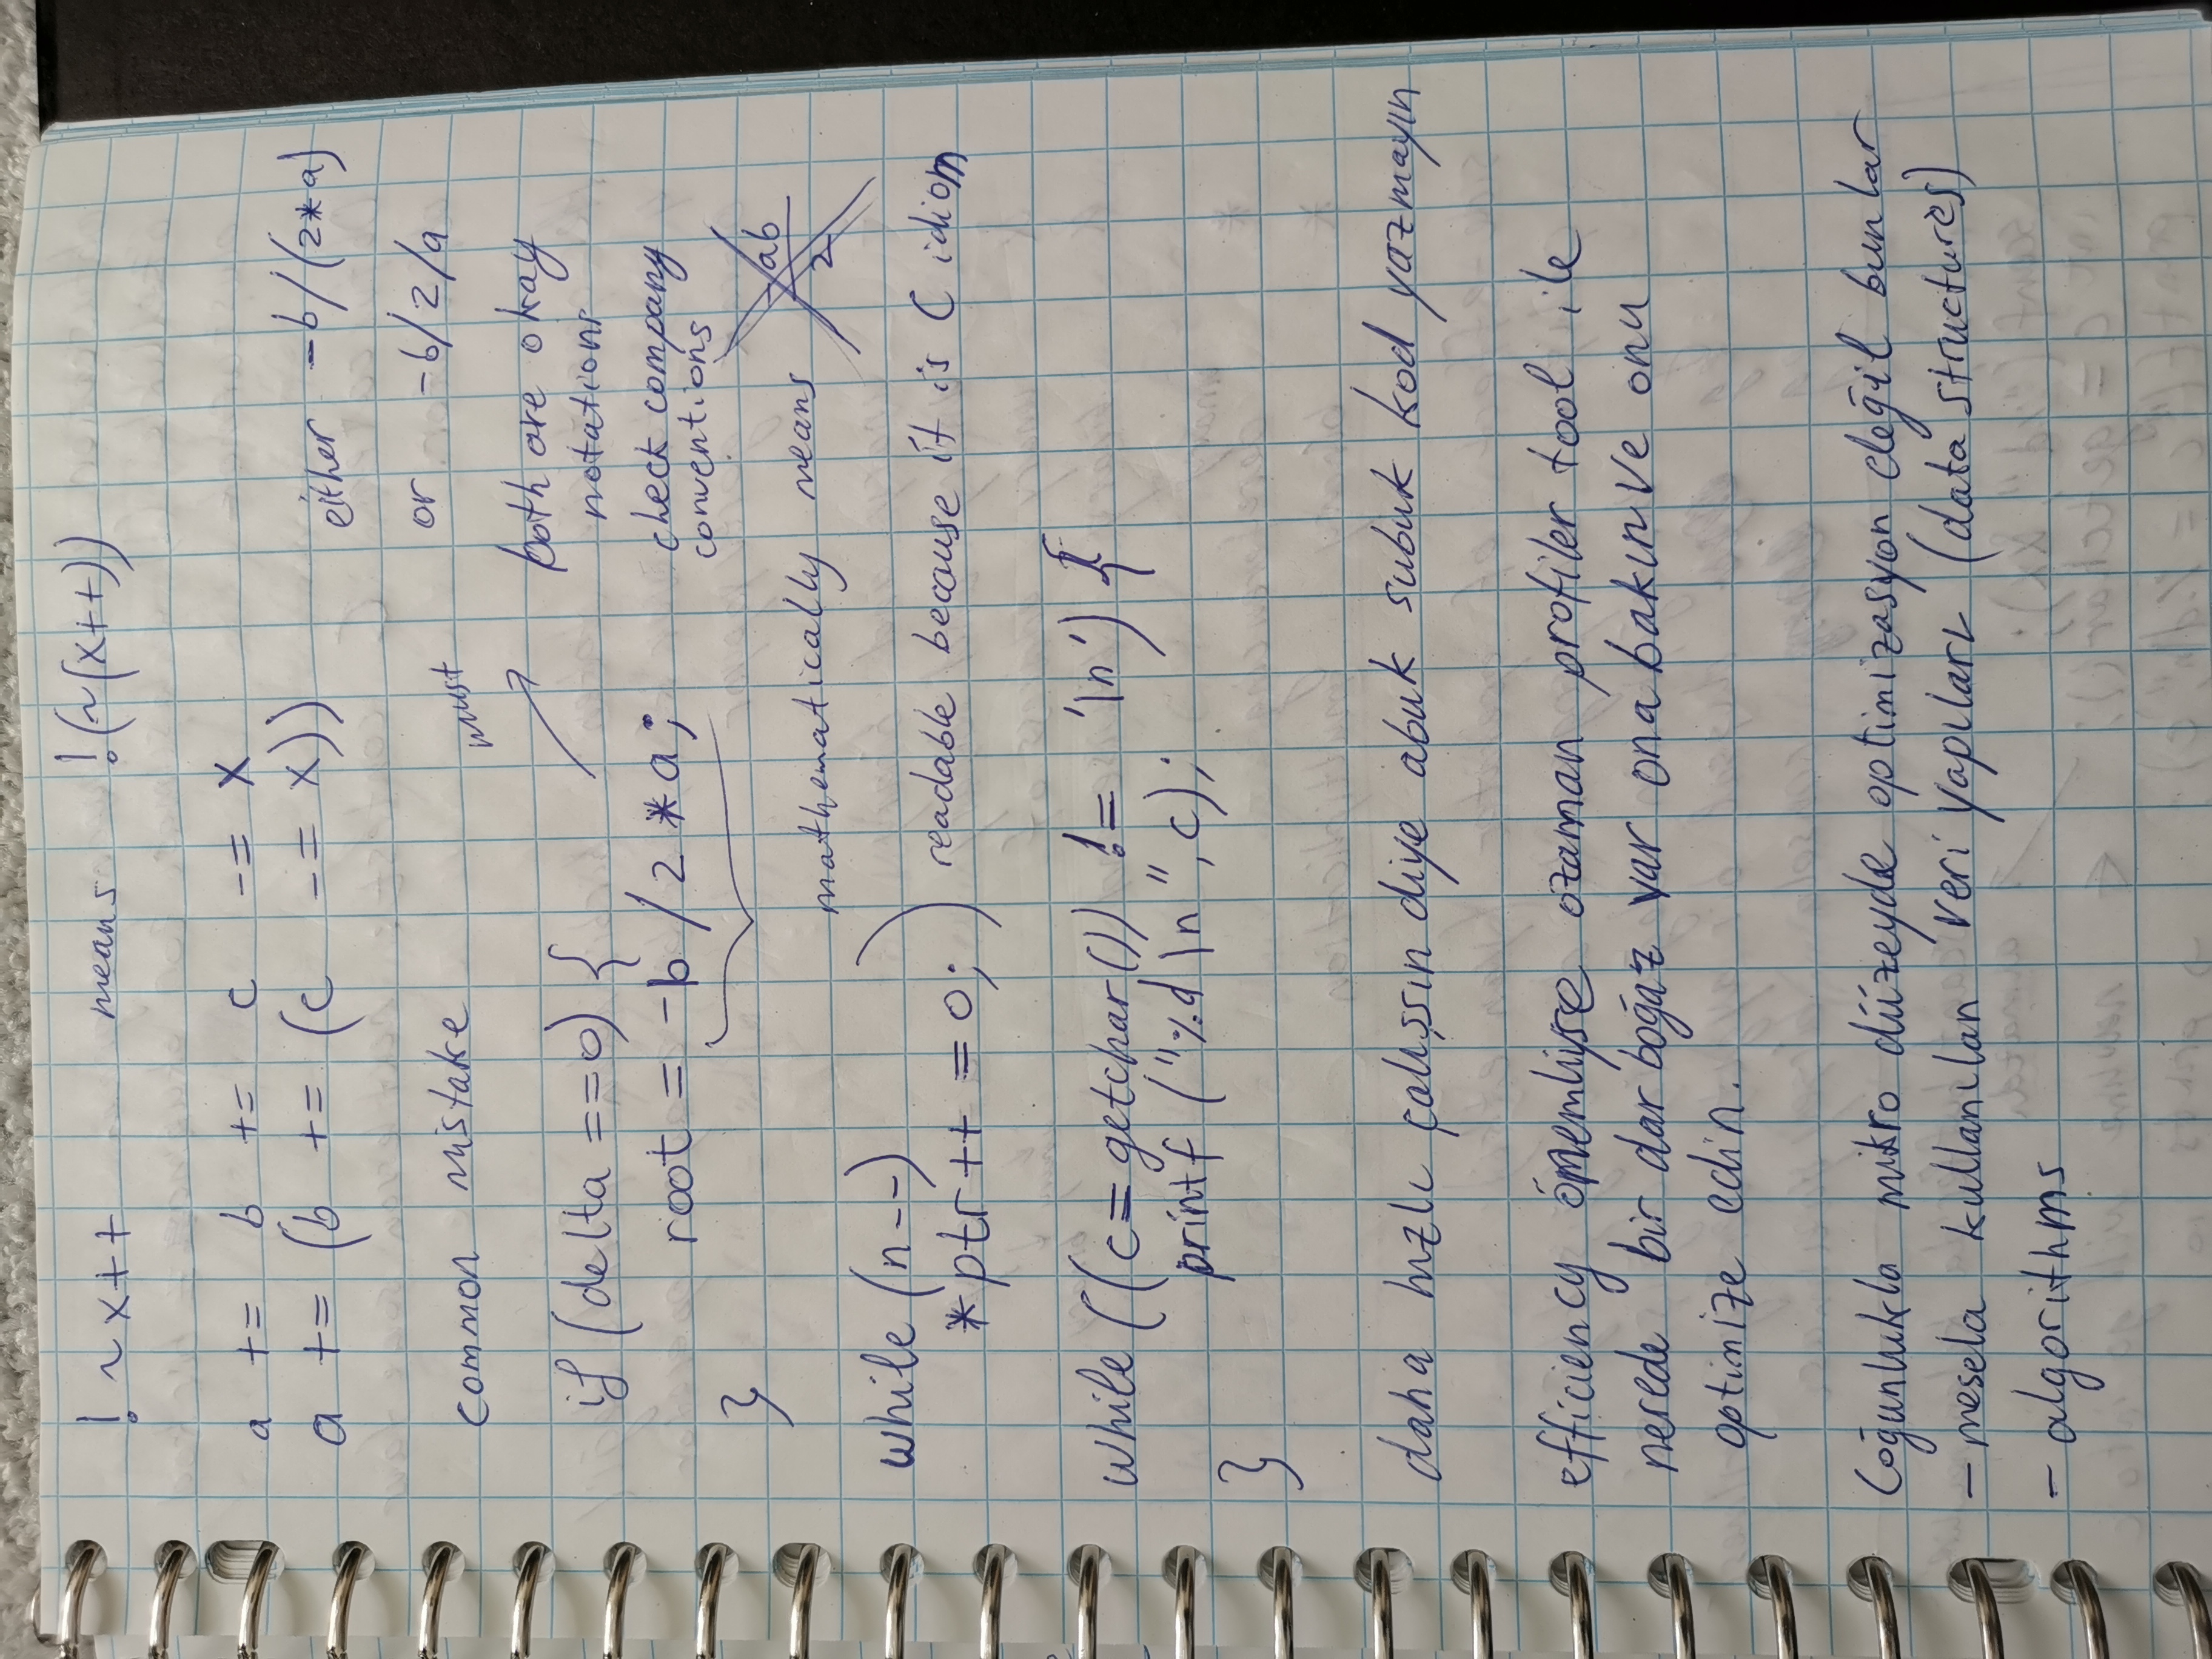 ! ~x++ means !(~(x++))
a += b += c -= x
a += (b += (c -= x))
either -b/(2*a)
or -b/2/a
common mistake
must
both are okay
notations
check company
conventions
if (delta ==0) {
root = -b / 2 *a;
}
mathematically means -ab
2
while (n--)
*ptr++ = 0;
readable because it is C idiom
while ((c=getchar()) != '\n') {
printf ("%d \n", c);
}
daha hızlı çalışsın diye abuk subuk kod yazmayın
efficiency önemliyse ozaman profiler tool ile
nerede bir dar boğaz var ona bakın ve onu
optimize edin.
Çoğunlukla mikro düzeyde optimizasyon değil bunlar
- mesela kullanılan veri yapıları (data structures)
- algorithms